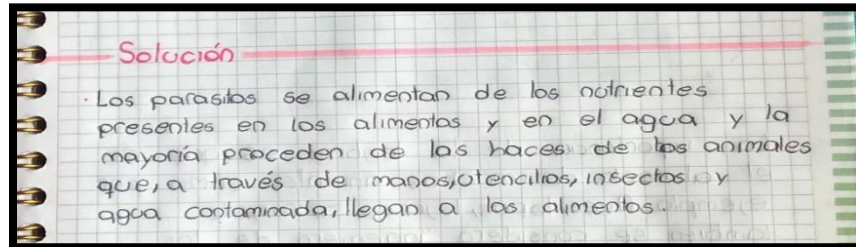 Solución
· Los parasitos se alimentan de los nutrientes
presentes en los alimentos y en el agua y la
mayoría proceden de las haces de los animales
que, a través de manos, utencilios, insectos y
agua contaminada, llegan a los alimentos.